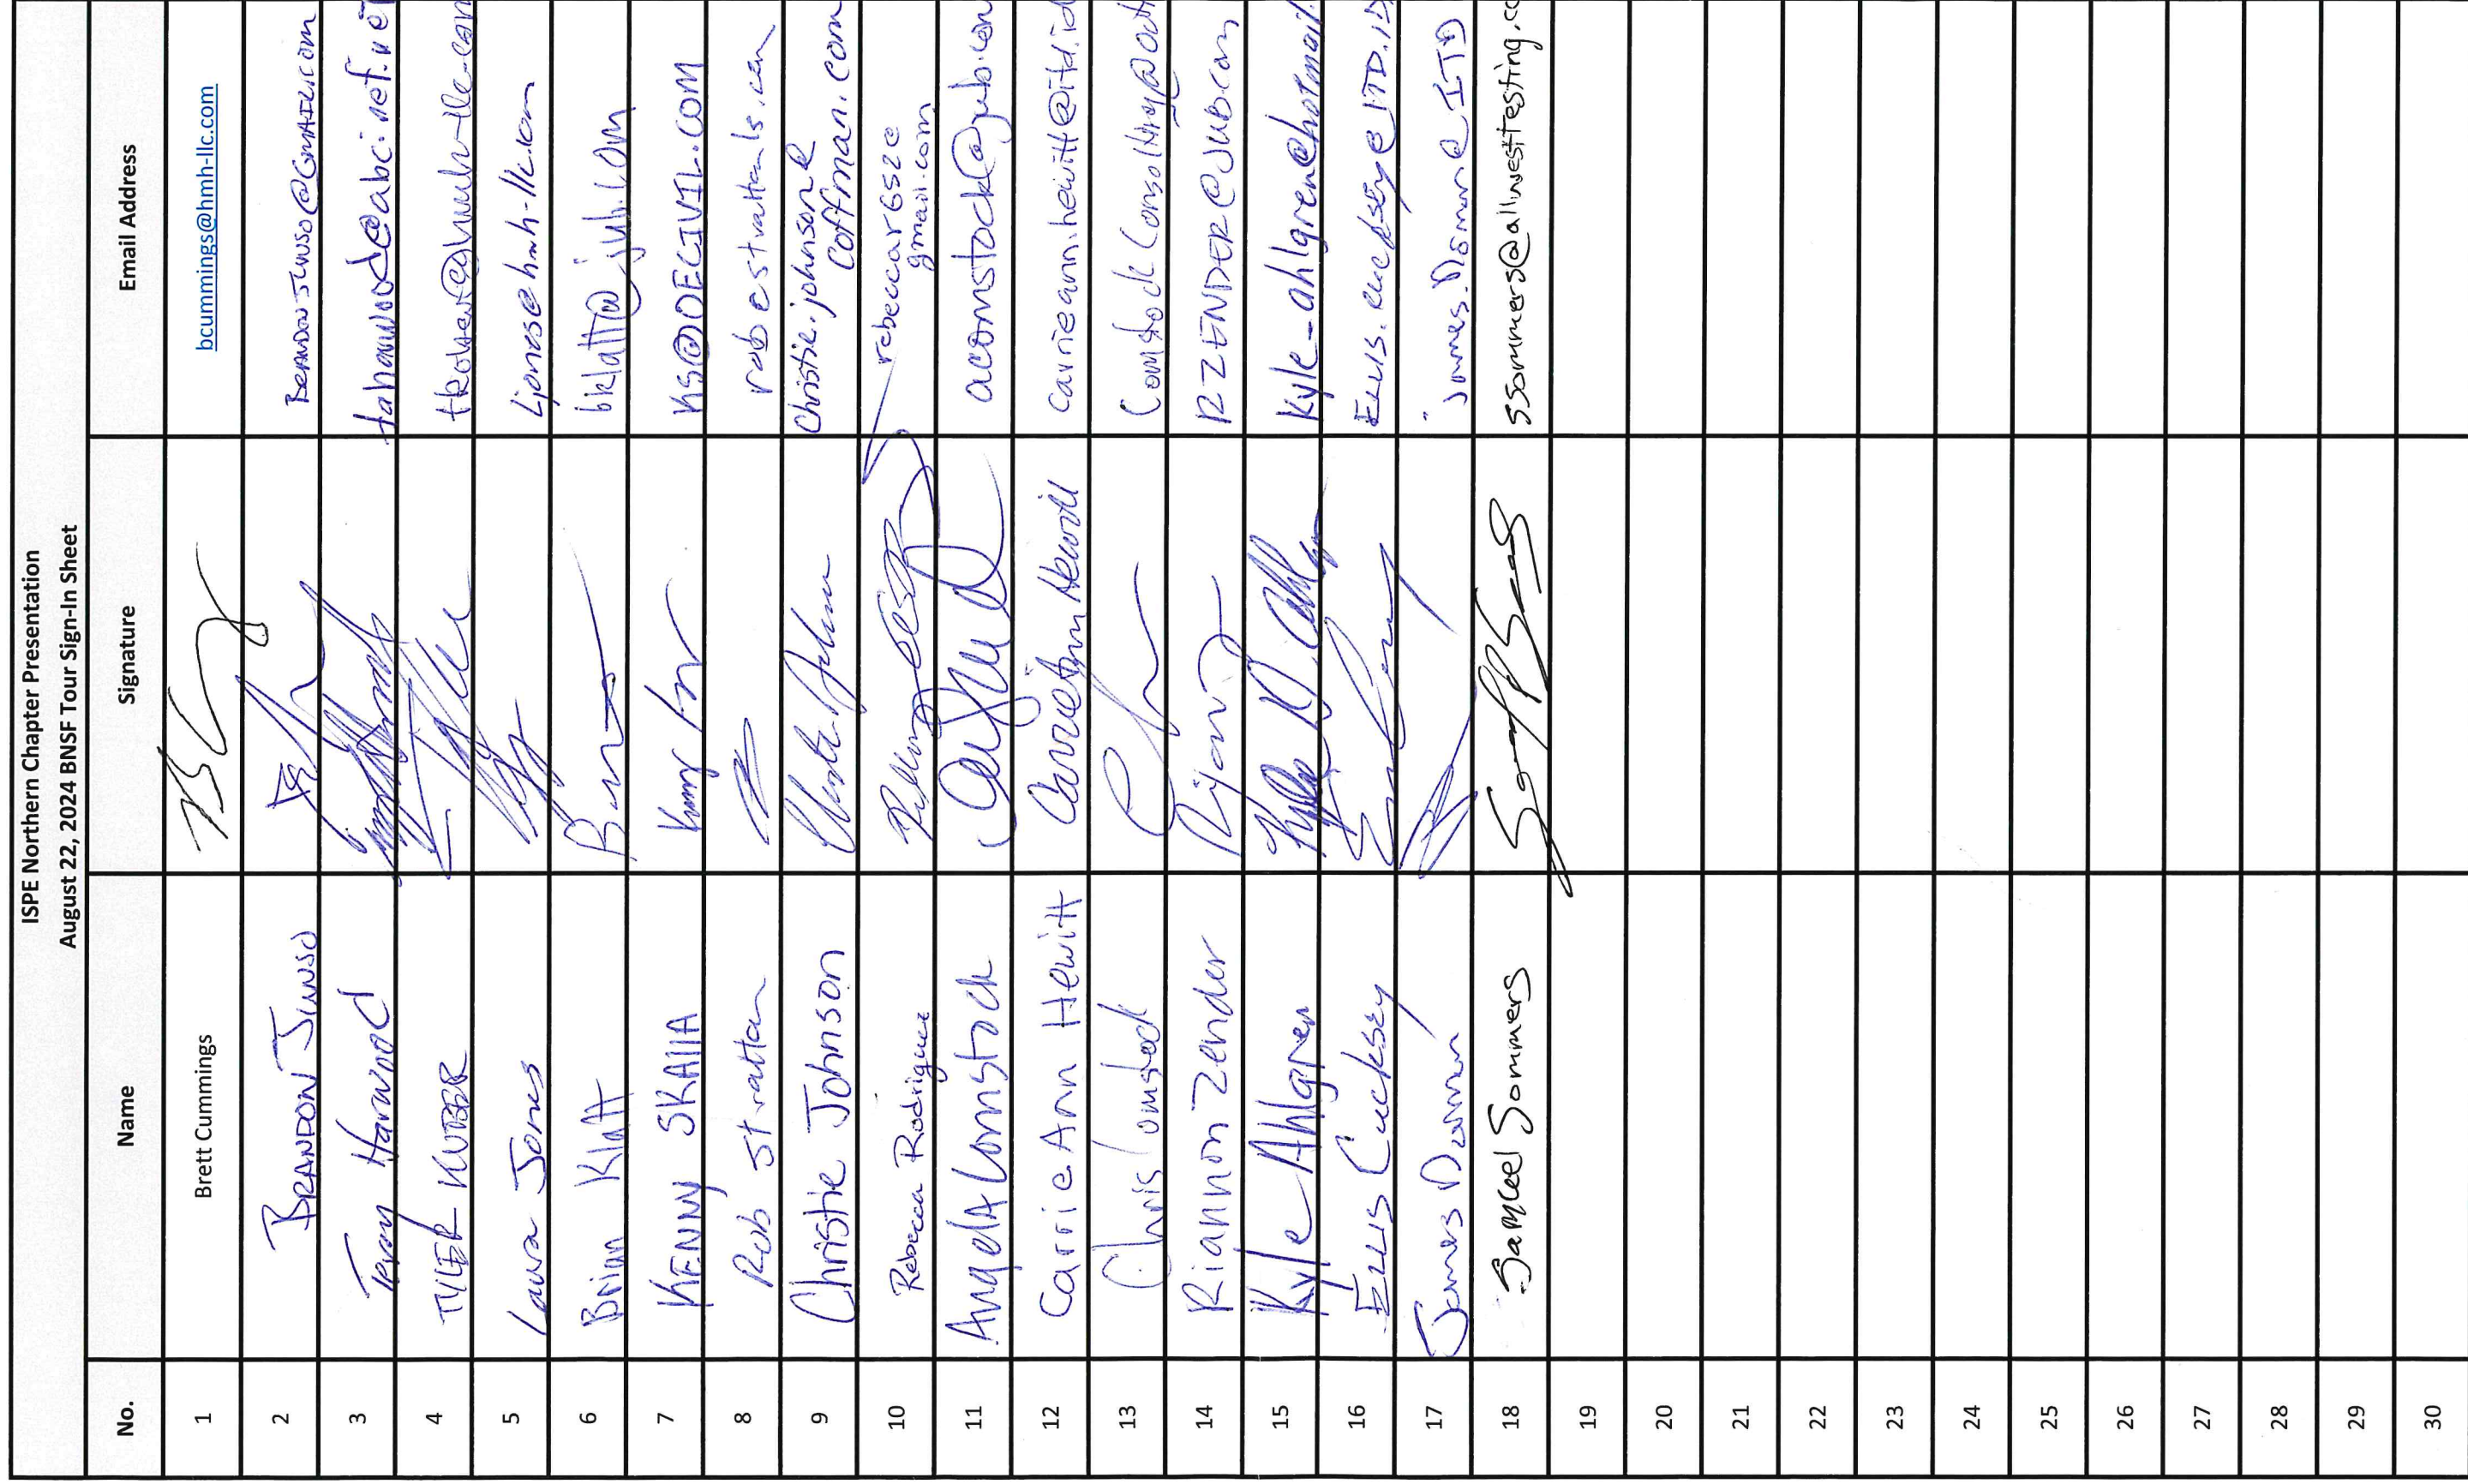 ISPE Northern Chapter Presentation
August 22, 2024 BNSF Tour Sign-In Sheet
No. Name Signature Email Address
1 Brett Cummings bcummings@hmh-llc.com
2 BRANDON JUNSO BRANDONJUNSO@GMAIL.COM
3 Terry Harwood taharwood@abci.net
4 TYLER
5 Laura Jones Ljones@hmh-llc.com
6 Brian Klatt bklatt@jub.com
7 KENNY SKALLA KS@DECIVIL.COM
8 Rob Strattan
9 Christie Johnson Christie.johnson@
coffman.com
10 Rebecca Rodriguez rebeccar652@
gmail.com
11 Angela Comstock acomstock@jub.com
12 Carrie Ann Hewitt Carrie Ann Hewitt carrieann.hewitt@itd.id
13 Chris Comstock
14 Riannon Zender RZENDER@JUB.COM
15 Kyle Ahlgren Kyle D. Ahlgren Kyle_ahlgren@hotmail.
16 ELLIS Cucksey ELLIS.cucksey@ITD.ID
17 James Dorman James.Dorman@ITD
18 Samuel Sommers ssommers@allwesttesting.co
19
20
21
22
23
24
25
26
27
28
29
30